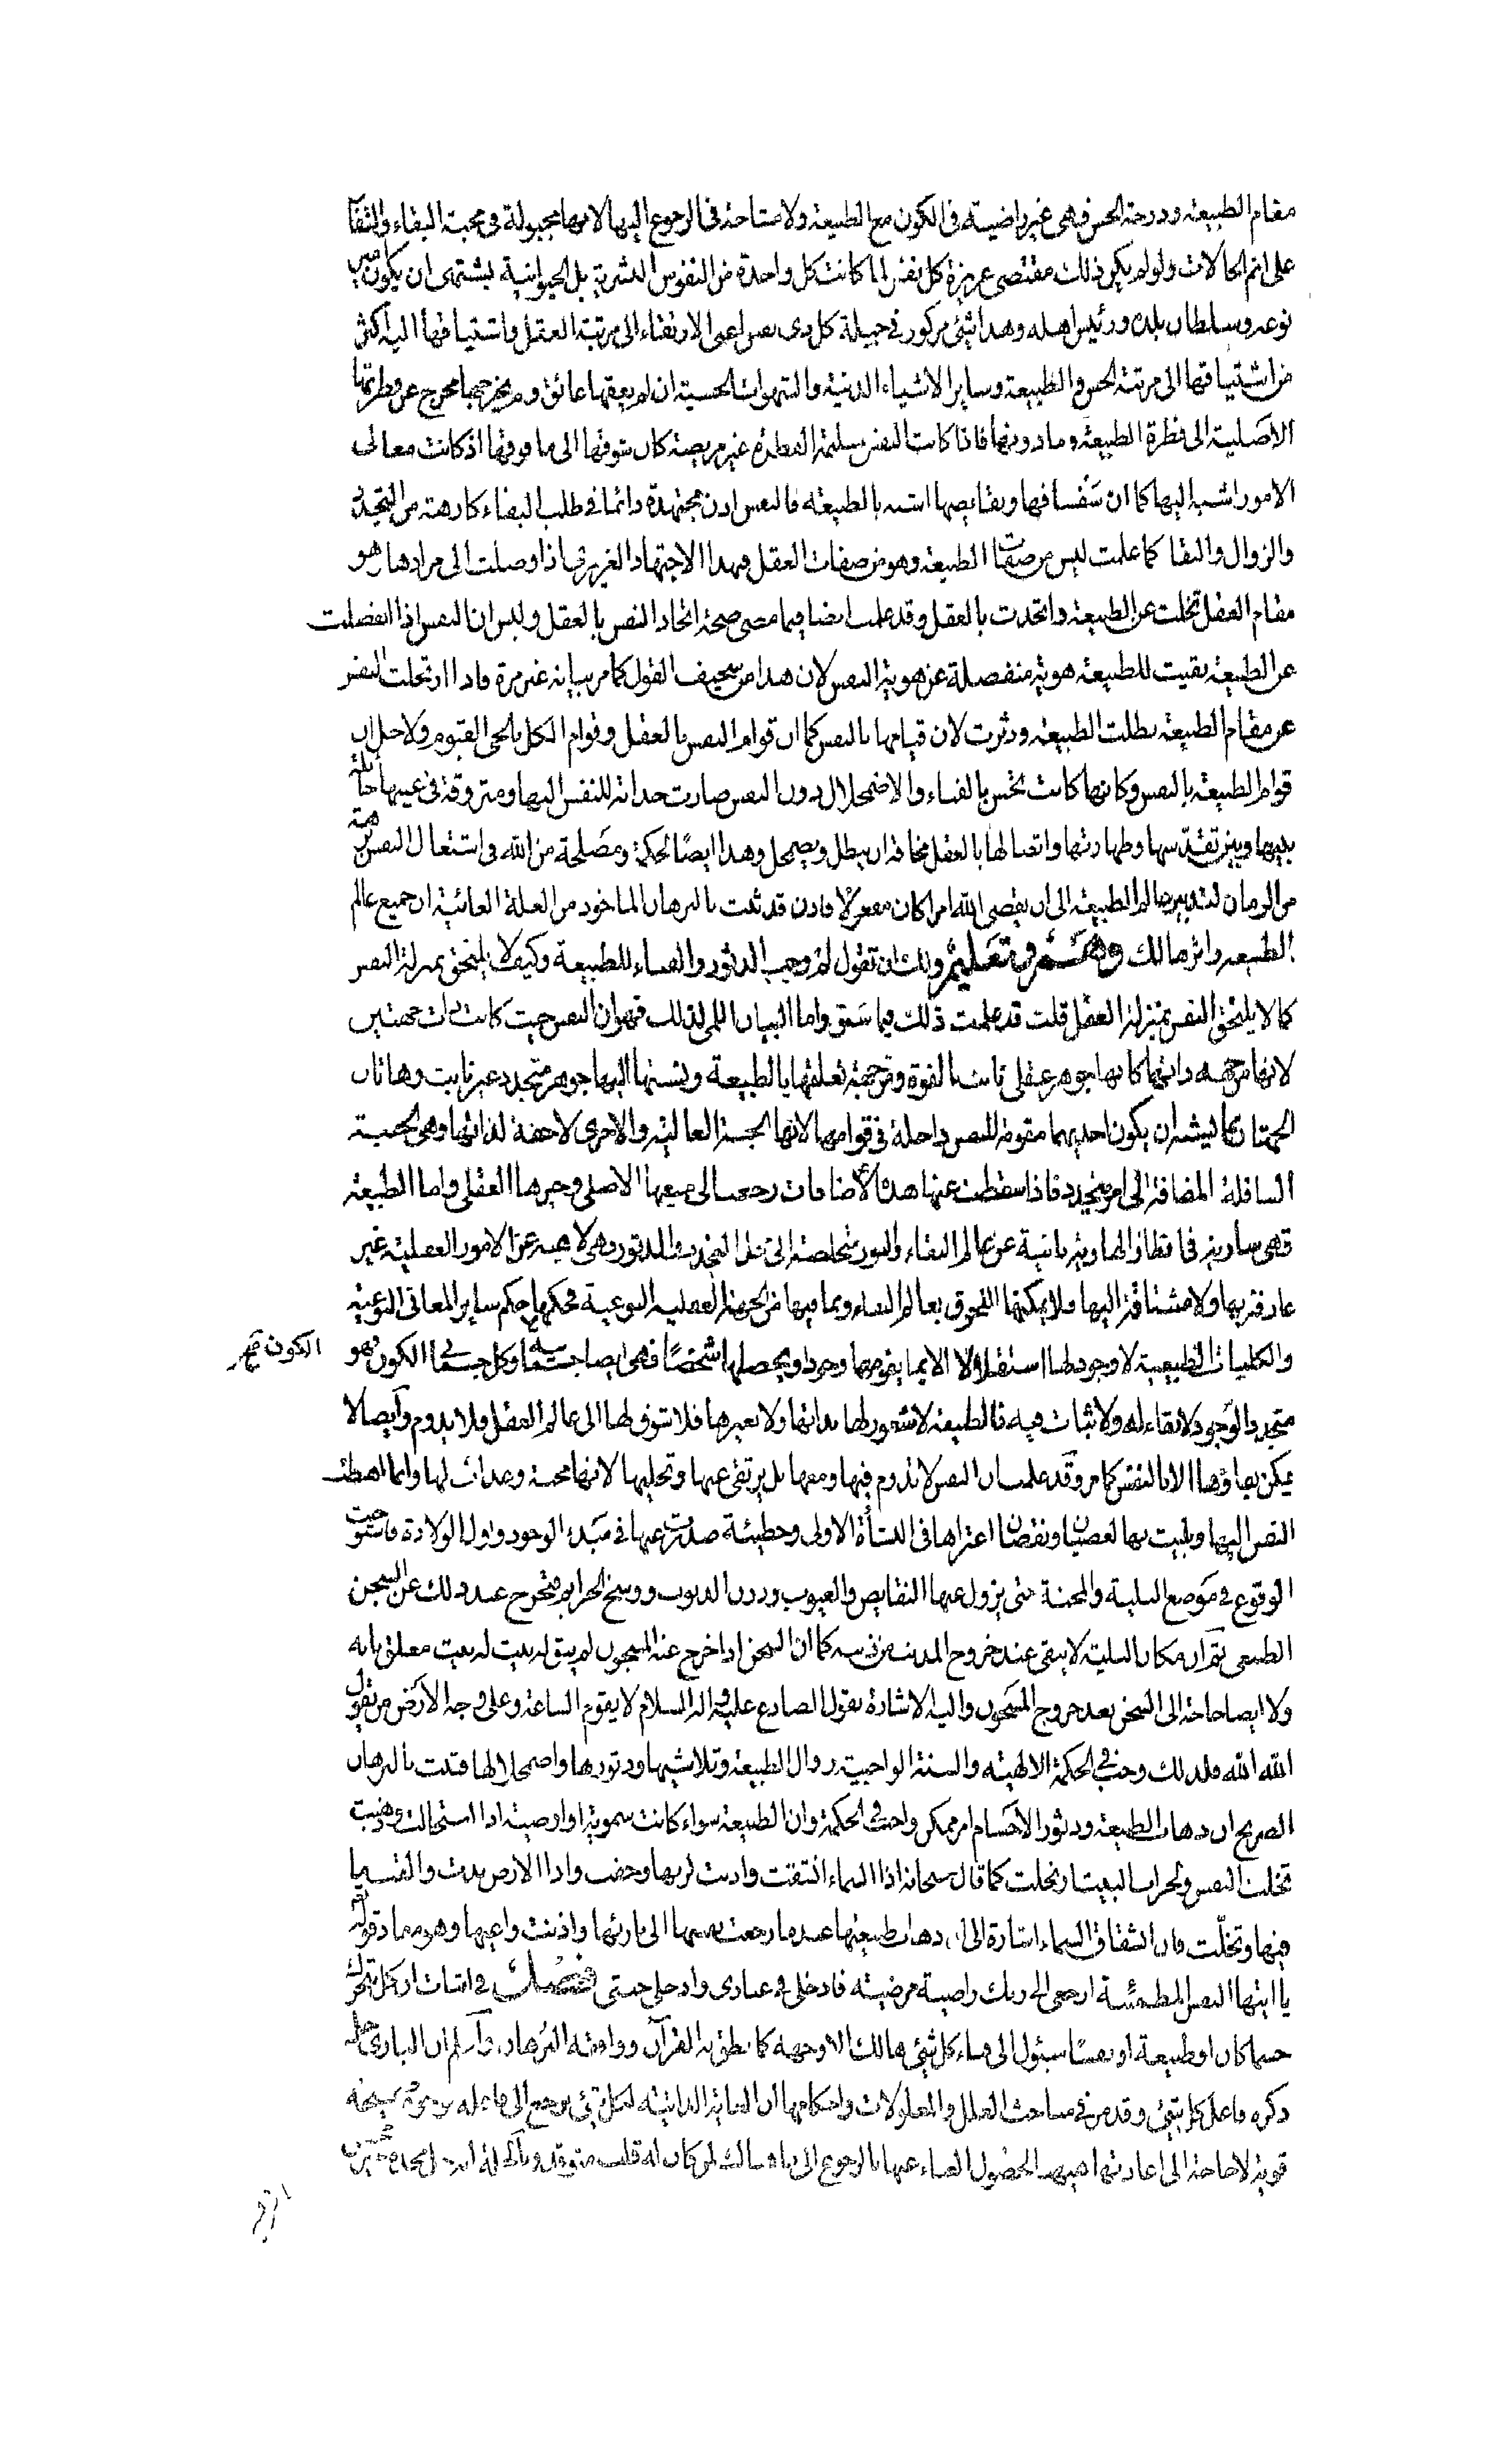 مقام الطبيعة ودرجة الحس فهى غير راضية فى الكون مع الطبيعة ولا مشتاقة فى الرجوع اليها لانها مجبولة فى محبة البقاء والثقا
على اتم الحالات ولو لم يكن ذلك مقتضى عزيزة كل نفس لما كانت كل واحدة من النفوس البشرية بل الحيوانية يشتهى ان يكون امير
نوعه وسلطان بلده ورئيس اهله وهذا شئ مركوز فى جبلة كل ذى نفس اعنى الارتقاء الى مرتبة العقل واشتياقها اليه اكثر
من اشتياقها الى مرتبة الحس والطبيعة وساير الاشياء الدنية والشهوات الحسية ان لم يعقها عائق ولم يخرجها مخرج عن فطرتها
الاصلية الى فطرة الطبيعة وما دونها فاذا كانت النفس سليمة الفطرة غير مريضة كان شوقها الى ما فوقها اذ كانت معالى
الامور اشبه اليها كما ان سفسافها ونقايصها اشبه بالطبيعة فالنفس اذن مجتهدة دائما فى طلب البقاء كارهة من التجدد
والزوال والبقا كما علمت ليس من صفات الطبيعة وهو من صفات العقل فهذا الاجتهاد الغريزى اذا وصلت الى مرادها وهو
مقام العقل تخلت عن الطبيعة واتحدت بالعقل وقد علمت ايضا فيما مضى صحة اتحاد النفس بالعقل وليس ان النفس اذا انفصلت
عن الطبيعة بقيت للطبيعة هوية منفصلة عن هوية النفس لان هذا من سخيف القول كما مر بيانه غير مرة فاذا ارتحلت النفس
عن مقام الطبيعة بطلت الطبيعة ودثرت لان قيامها بالنفس كما ان قوام النفس بالعقل وقوام الكل بالحى القيوم ولاجل ان
قوام الطبيعة بالنفس وكانها كانت تحس بالفناء والاضمحلال دون النفس صارت جذابة للنفس اليها ومتزوقة فى عينها حائلة
بينها وبين تقدسها وطهارتها واتصالها بالعقل مخافة ان يبطل ويضمحل وهذا ايضًا لحكمة ومصلحة من الله فى اشتغال النفس برهة
من الزمان لتدبير عالم الطبيعة الى ان يقضى الله امرا كان مفعولا فاذن قد ثبت بالبرهان الماخوذ من العلة الغائية ان جميع عالم
الطبيعة داثر هالك وهم وتعليم ولك ان تقول لم وجب الدثور والفناء للطبيعة وكيف لا يلتحق بمنزلة النفس
كما لا يلتحق النفس بمنزلة العقل قلت قد علمت ذلك فيما سبق واما البيان اللمى لذلك فهو ان النفس حيث كانت ذات جهتين
لانها من جهة ذاتها كانها جوهر عقلى ثابت بالقوة ومن جهة تعلقها بالطبيعة ونسبتها اليها جوهر متجدد غير ثابت وهاتان
الجهتان مما يشبه ان يكون احديهما مقومة للنفس داخلة فى قوامها لانها الجنبة العالية والاخرى لاحقة لذاتها وهى الجنبة
السافلة المضافة الى امر متجدد فاذا سقطت عنها هذه الاضافات رجعت الى صقعها الاصلى وحيزها العقلى واما الطبيعة
فهى سارية فى اقطار الهاوية نائية عن عالم البقاء والنور الى التجدد والدثور وهى لاهية عن الامور العقلية غير
عارفة بها ولا مشتاقة اليها فلا يمكنها اللحوق بعالم البقاء وما فيها من الجهة العقلية النوعية فحكمها حكم ساير المعانى النوعية
والكليات الطبيعية لا وجود لها استقلالا الا بما يقومها وجودا ويحصلها شخصًا فهى ايضا جسمانية وكل جسمانى الكون فهو
الكون فهو
متجدد الوجود لا بقاء له ولا ثبات فيه فالطبيعة لا شعور لها بذاتها ولا بغيرها فلا شوق لها الى عالم العقل فلا يدوم وايضا لا
يمكن بقاؤها الا بالنفس كما مر وقد علمت ان النفس لا تدوم فيها ومعها بل يرتقى عنها وتخليها لانها محنة وعذاب لها وانما اهبطت
النفس اليها وبليت بها لعصيان ونقصان اعتراها فى النشأة الاولى وخطيئة صدرت عنها فى مبدء الوجود واول الولادة فاستوجبت
الوقوع فى موضع البلية والمحنة حتى يزول عنها النقايص والعيوب ودرن الذنوب ووسخ الجرايم فتخرج عند ذلك عن السجن
الطبيعى ثم ان مكان البلية لا يبقى عند خروج المذنب من ذنبه كما ان السجن اذا خرج عنه المسجون لم يبق له بيت معلق بابه
ولا ايضا حاجة الى السجن بعد خروج المسجون واليه الاشارة بقول الصادع عليه واله السلام لا يقوم الساعة وعلى وجه الارض من يقول
الله الله فلذلك وجب فى الحكمة الالهية والسنة الواجبية زوال الطبيعة وتلاشيها ودثورها واضمحلالها فثبت بالبرهان
الصريح ان ذهاب الطبيعة ودثور الاجسام امر ممكن واجب فى الحكمة وان الطبيعة سواء كانت سموية او ارضية اذا استحالت وذهبت
تخلت النفس ولخراب البيت ارتحلت كما قال سبحانه اذا السماء انشقت واذنت لربها وحقت واذا الارض مدت والقت ما
فيها وتخلت فان انشقاق السماء اشارة الى ذهاب طبيعتها عند ما رجعت نفسها الى بارئها واذنت وهو مفاد قوله
يا ايتها النفس المطمئنة ارجعى الى ربك راضية مرضية فادخلى فى عبادى وادخلى جنتى فصل فى اثبات ان كل متحرك
جسما كان او طبيعة او نفسًا سيئول الى فناء كل شئ هالك الا وجهه كما نطق به القرآن ووافقه البرهان واعلم ان البارى جل
ذكره فاعل كل شئ وقد مر فى مباحث العلل والمعلولات واحكامها ان الغاية الذاتية لكل شئ يرجع الى فاعله
قوية لا حاجة الى اعادتها